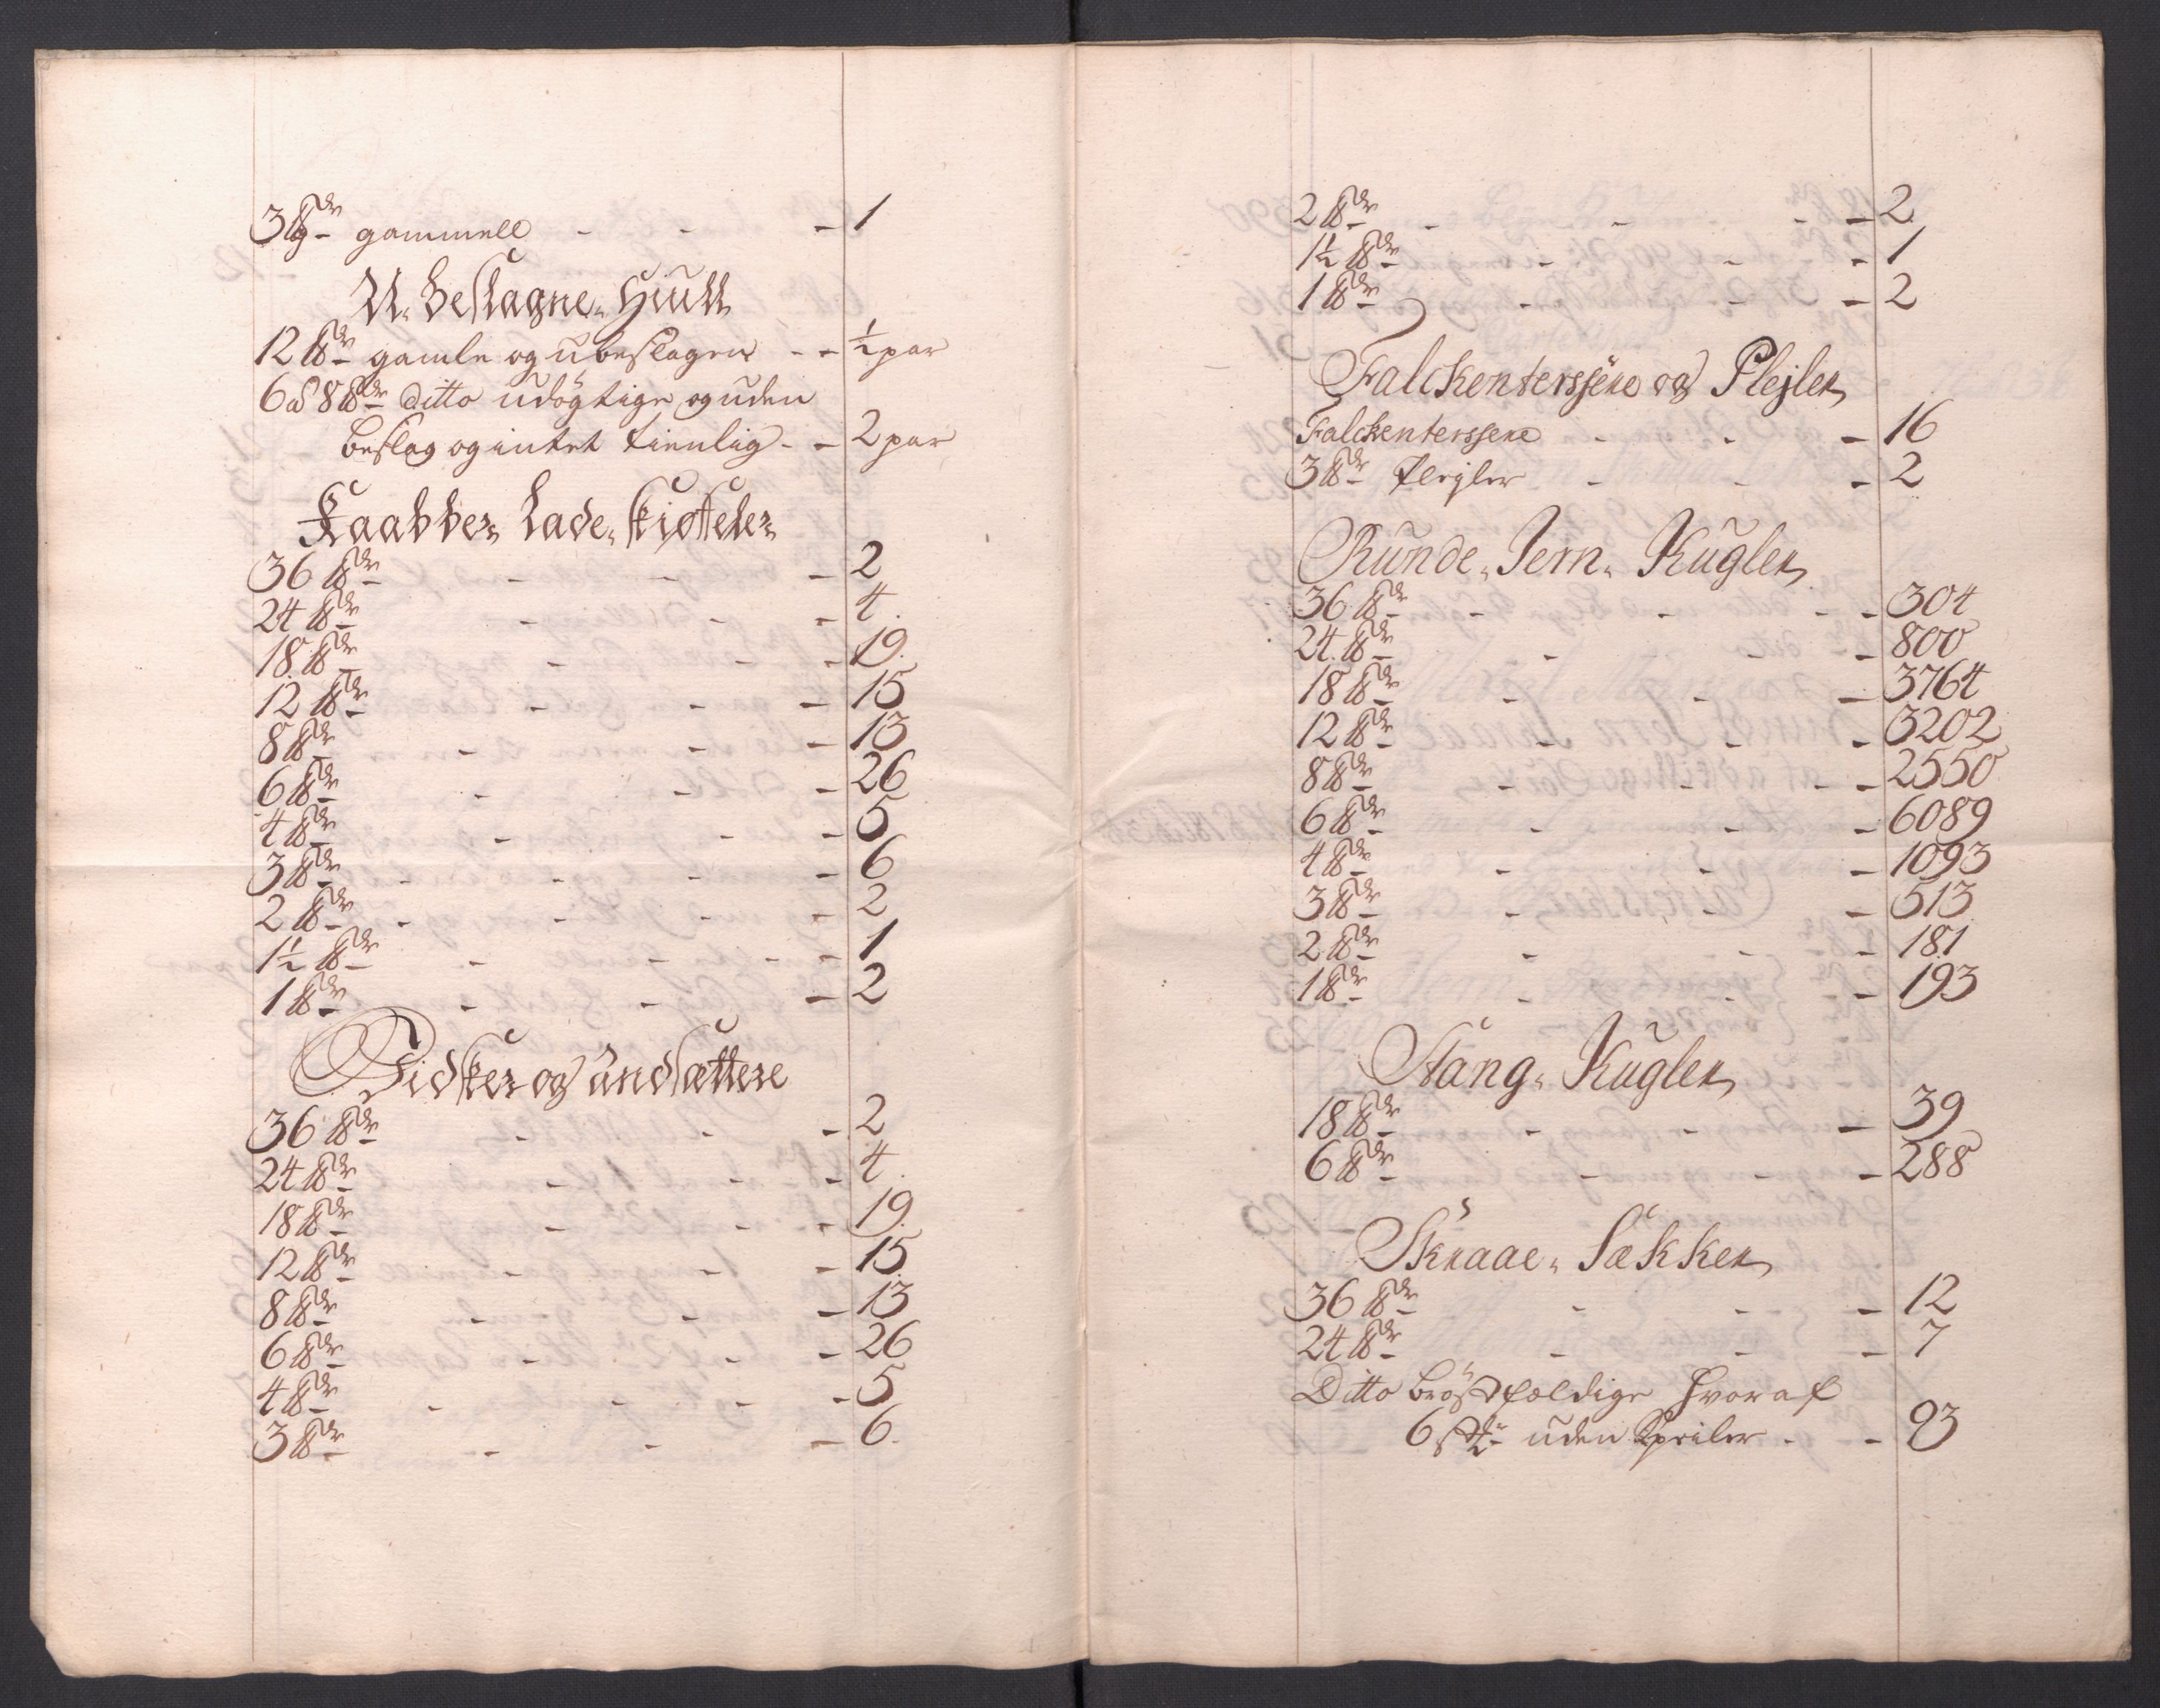 3 ℔dr gammell - - - 1
U-beslagne Hiull
12 ℔dr gamle og ubeslagen - - ½ par
6 à 8 ℔dr ditto udögtige og uden
beslag og intet tienlig - - 2 par
Kaabber Lade-skioffeler
36 ℔dr - - - 2
24 ℔dr - - - 4.
18 ℔dr - - - 19.
12 ℔dr - - - 15
8 ℔dr - - - 13
6 ℔dr - - - 26
4 ℔dr - - - 5
3 ℔dr - - - - 6
2 ℔dr - - - - 2
1½ ℔dr - - - - 1
1 ℔dr - - - 2
Vidsker og Andsættere
36 ℔dr - - - 2
24 ℔dr - - - 4.
18 ℔dr - - - 19.
12 ℔dr - - - 15
8 ℔dr - - - 13
6 ℔dr - - - 26
4 ℔dr - - - - 5
3 ℔dr - - - 6.
2 ℔dr - - - - 2
1½ ℔dr - - - 1
1 ℔dr - - - 2
Falckenterssere og Plejler
Falckenterssere - - - 16
3 ℔dr Plejler - - - 2
Runde-Jern-Kugler
36 ℔dr - - - - 304
24 ℔dr - - - 800
18 ℔dr - - - 3764
12 ℔dr - - - 3202
8 ℔dr - - - - 2550
6 ℔dr - - - 6089
4 ℔dr - - - 1093
3 ℔dr - - - 513
2 ℔dr - - - 181
1 ℔dr - - - 193
Stang-Kugler
18 ℔dr - - - 39
6 ℔dr - - - 288
Skraae-Sækker
36 ℔dr - - - 12
24 ℔dr - - - 7
Ditto bröstfældige hvoraf
6 stkr uden Speiler - - 93